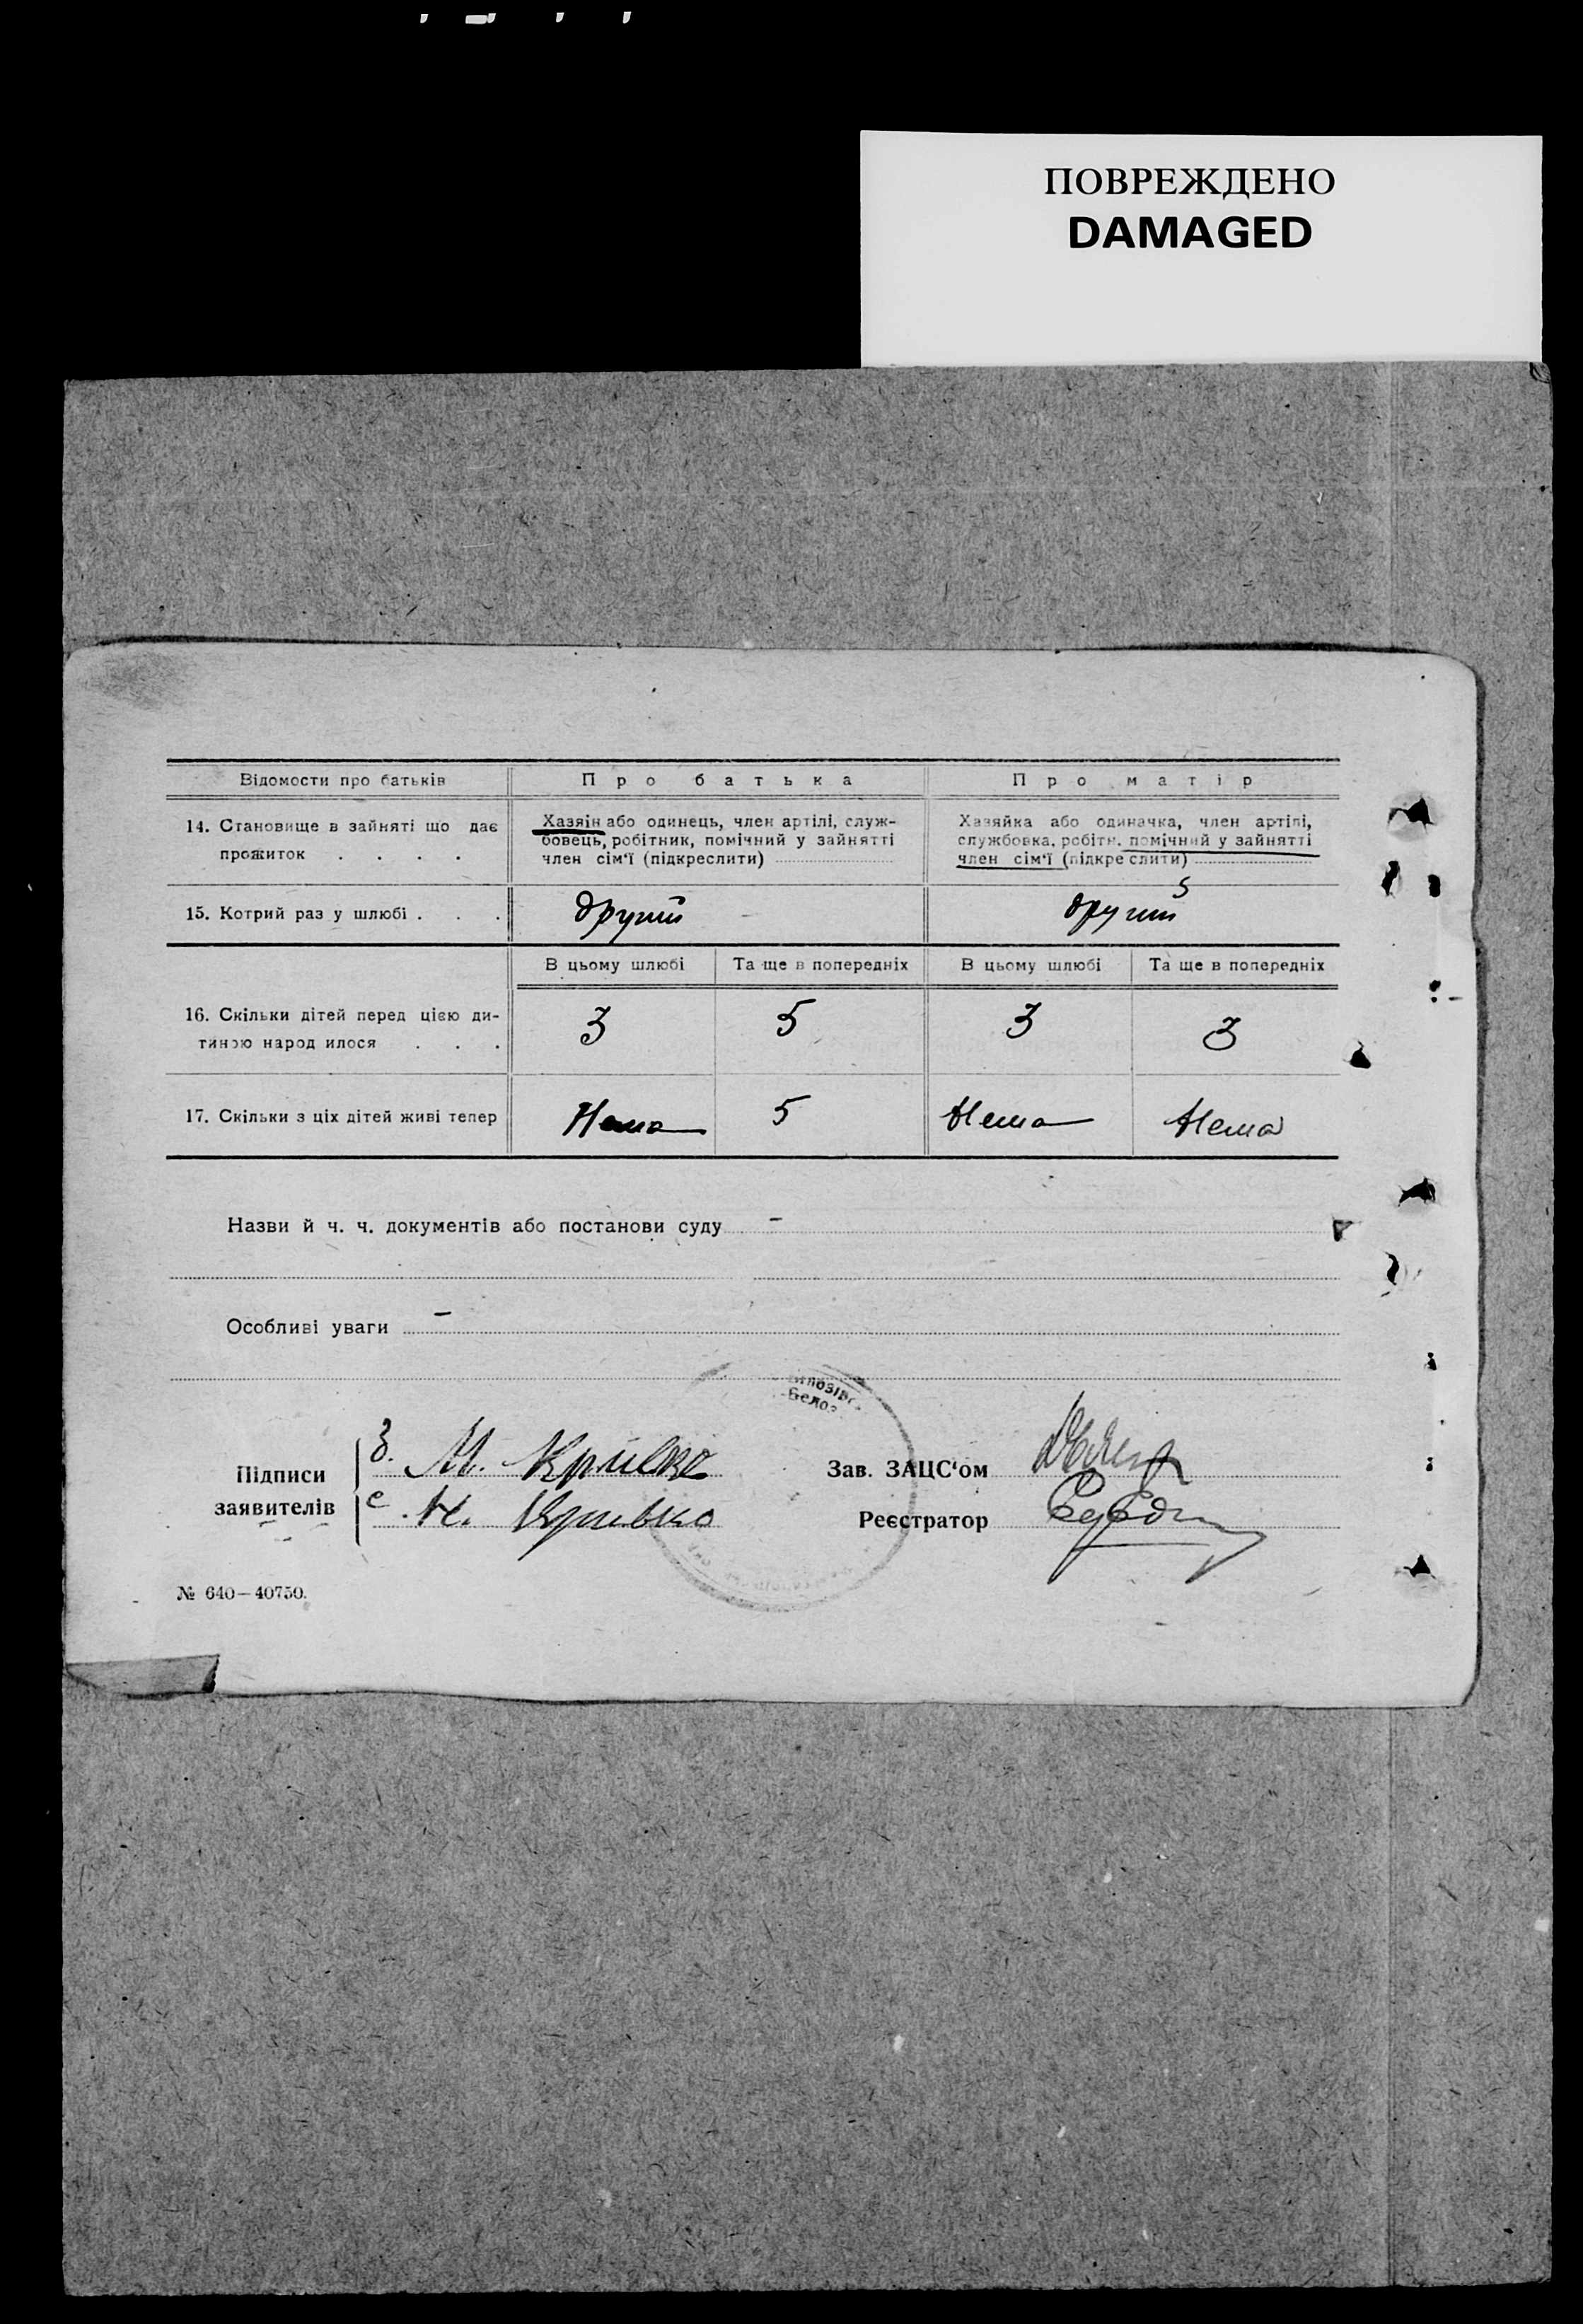 ПОВРЕЖДЕНО
DAMAGED
Відомости про батьків
Про батька
Про матір
14. Становище в зайняті що дає
прожиток . . . .
Хазяін або одинець, член артілі, служ-
бовець, робітник, помічний у зайнятті
член сім'ї (підкреслити)
Хазяйка або одиначка, член артілі,
службовка, робітн. помічний у зайнятті
член сім'ї (підкреслити)
15. Котрий раз у шлюбі . . .
другий
другий
В цьому шлюбі
Та ще в попередніх
В цьому шлюбі
Та ще в попередніх
16. Скільки дітей перед цією ди-
тиною народилося . . .
3
5
3
3
17. Скільки з ціх дітей живі тепер
Нема
5
Нема
Нема
Назви й ч. ч. документів або постанови суду –
Особливі уваги –
Підписи
заявителів
М. Кривко
Н. Кривко
Зав. ЗАЦС'ом
Реєстратор
№ 640—40750.